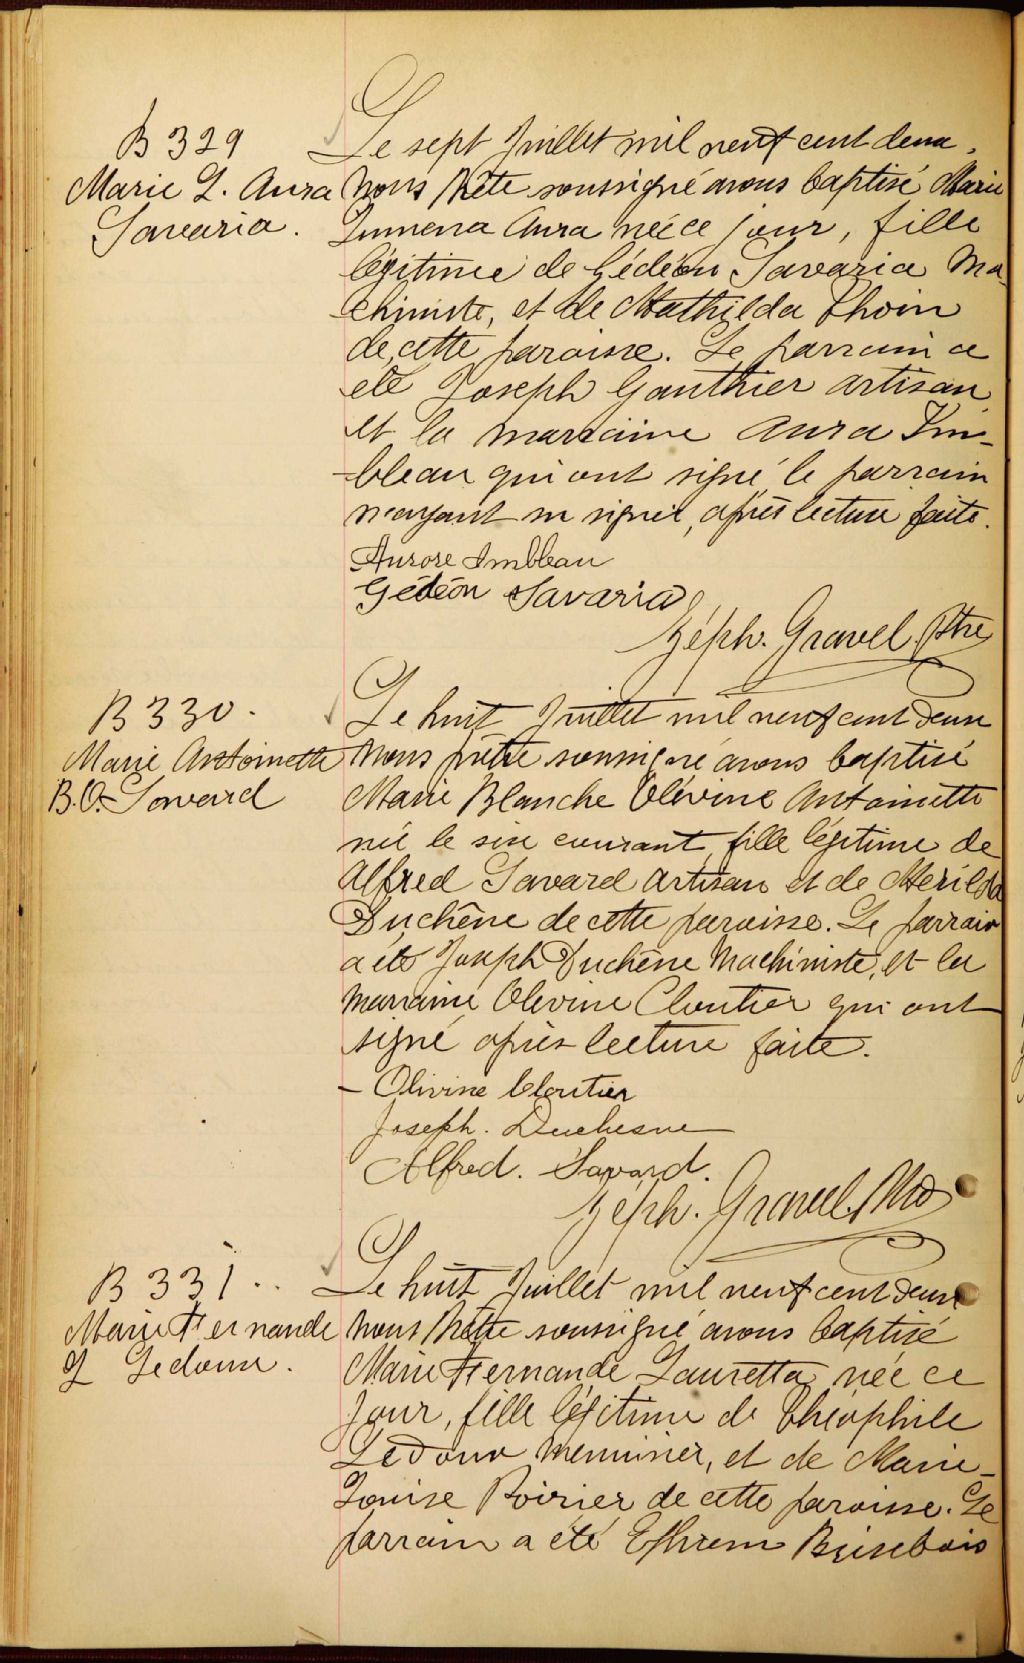 B 329
Marie L. Aura
Savaria.
Le sept Juillet mil neuf cent deux,
Nous Prêtre soussigné avons baptisé Marie
Aura née ce jour, fille
légitime de Gédéon Savaria Ma
chiniste, et de Mathilda Thoin
de cette paroisse. Le parrain a
été Joseph Gauthier artisan
et la marraine Aura Im-
-bleau qui ont signé, le parrain
n'ayant su signer, après lecture faite.
Aurore Imbleau
Gédéon Savaria
Zéph. Gravel Ptre
B 330.
Marie Antoinette
B.O. Savard
Le huit Juillet mil neuf cent deux
Nous prêtre soussigné avons baptisé
Marie Blanche Olévine Antoinette
née le six courant, fille légitime de
Alfred Savard artisan et de Mérilda
Duchêne de cette paroisse. Le parrain
a été Joseph Duchêne Machiniste, et la
marraine Olevine Cloutier qui ont
signé après lecture faite.
- Olivine Cloutier
Joseph. Duchesne
Alfred. Savard.
Zéph. Gravel, Ptre
B 331..
Marie Fernande
L Ledoux.
Le huit Juillet mil neuf cent deux
Nous Prêtre soussigné avons baptisé
Marie Fernande Lauretta née ce
jour, fille légitime de Théophile
Ledoux menuisier, et de Marie-
Louise Poirier de cette paroisse. Le
parrain a été Ephrem Brisebois